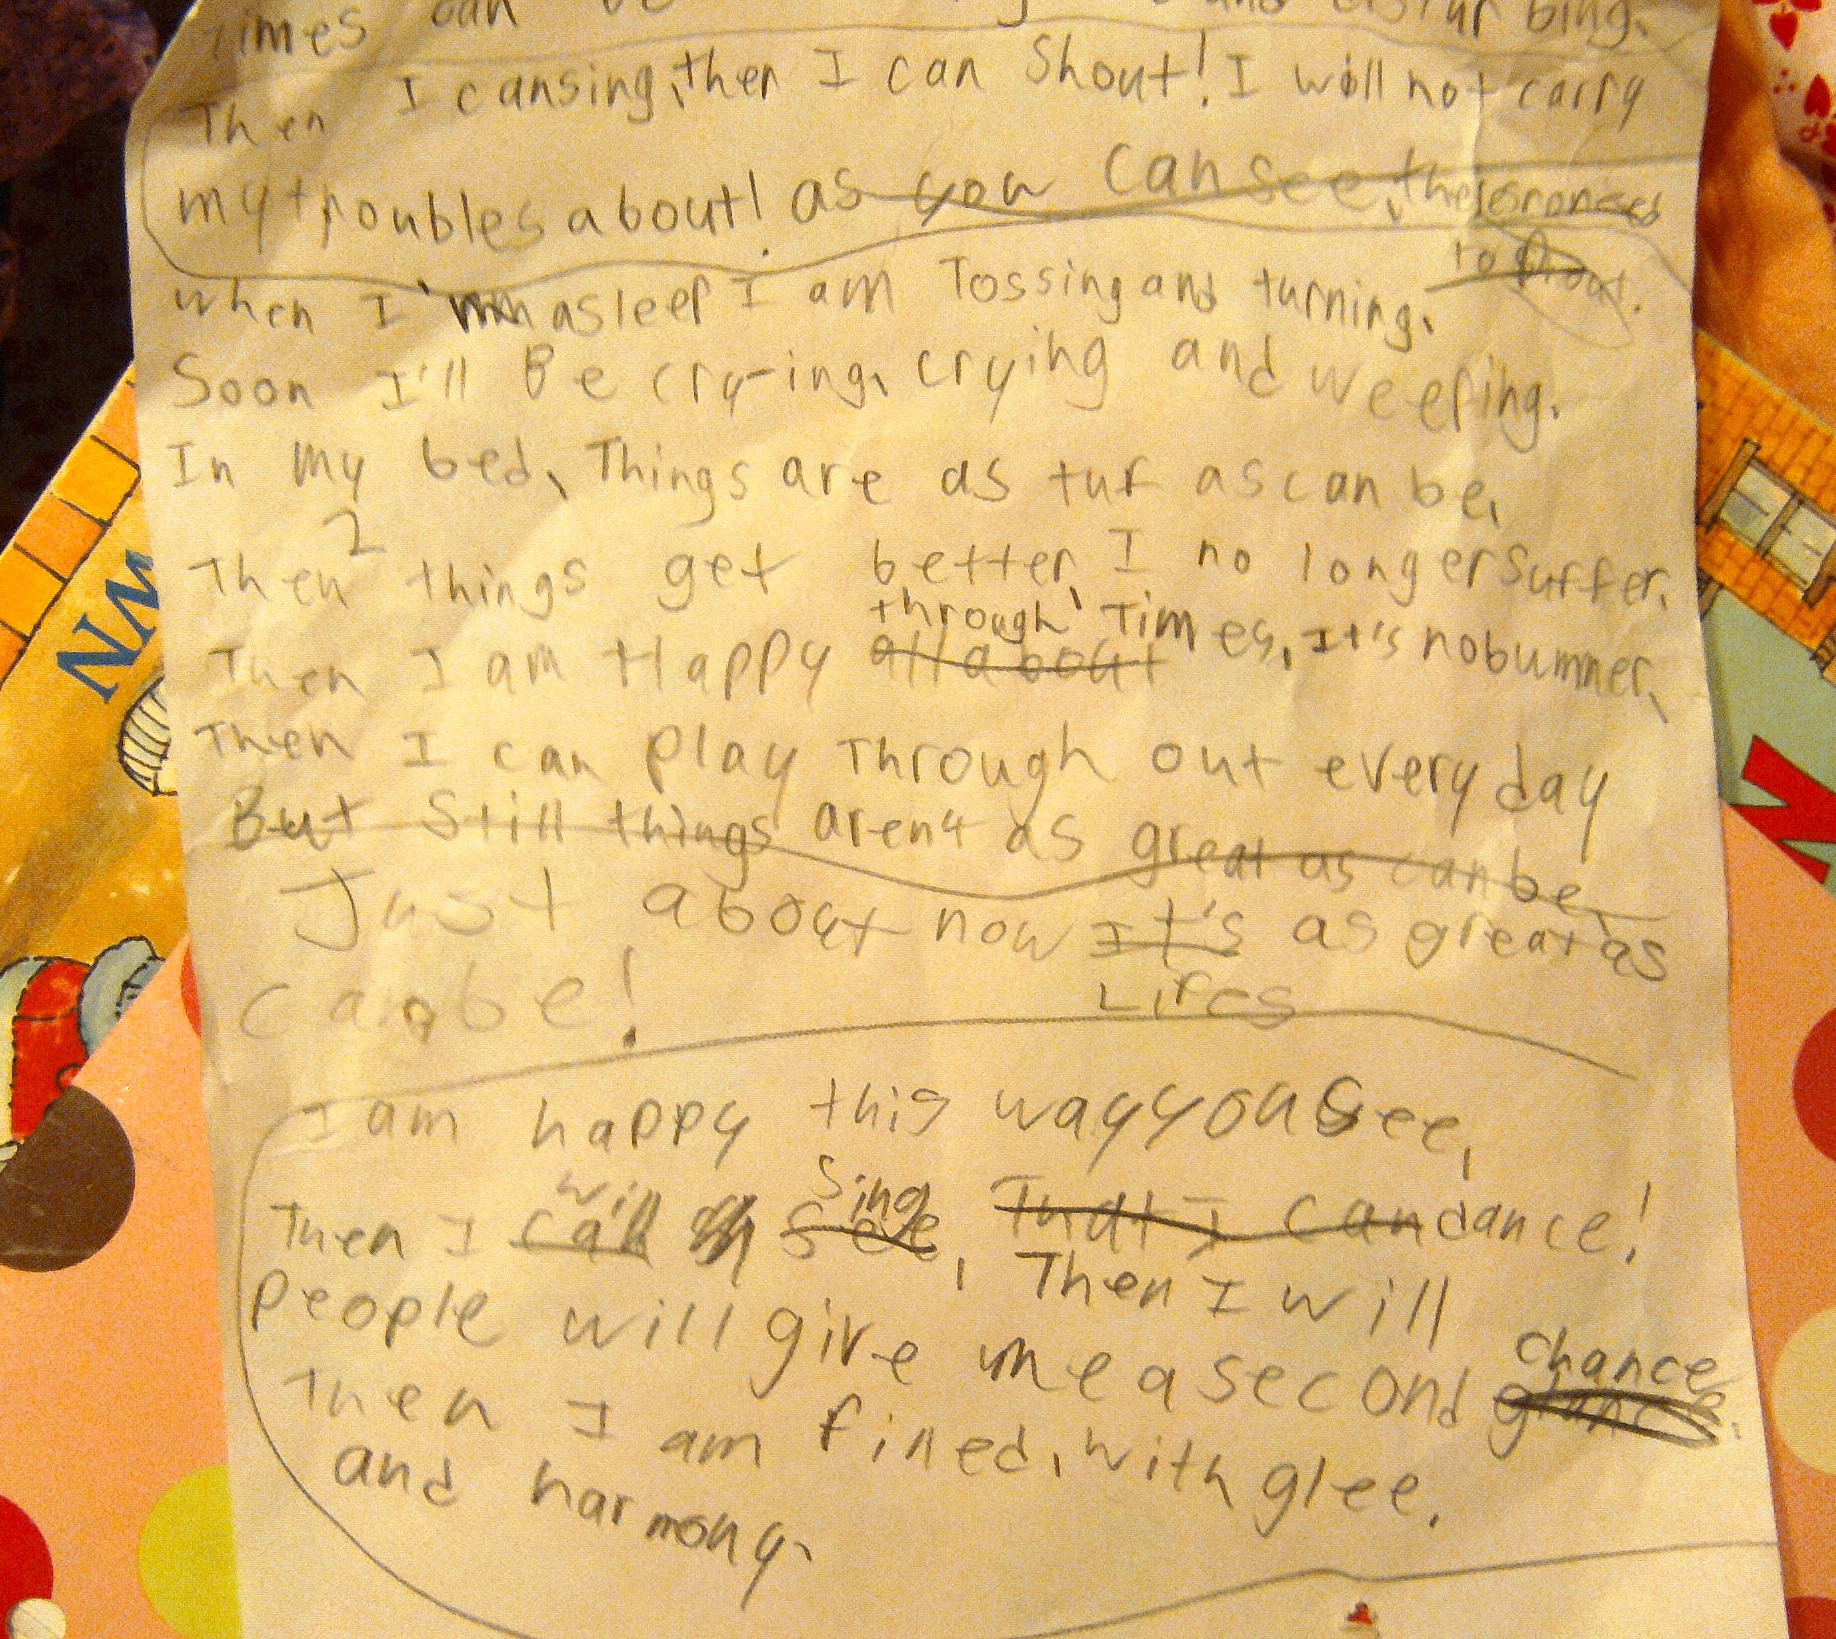 times can be and disturbing.
Then I can sing, then I can Shout! I will not carry
my troubles about! as you can see, theres
to
when I'm asleep I am Tossing and turning.
Soon I'll Be cry-ing, crying and weeping.
In my bed, Things are as tuf as can be,
2
Then things get better, I no longer suffer.
through Times, It's no bummer,
Then I am Happy all about
Then I can play Through out every day
But still things aren4 as great as can be,
Just about now It's as great as
Lifes
can be!
I am happy this way you see,
will Sing
Then I can see, That I can dance!
Then I will
people will give me a second glance.
chance
Then I am filled, with glee.
and harmony.
NW